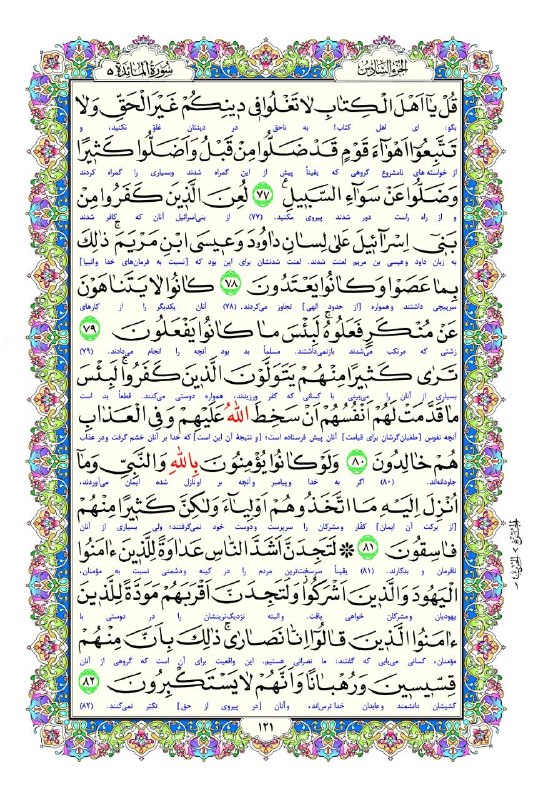 الجزء السادس
سورة المائدة ٥
قُلْ يَا أَهْلَ الْكِتَابِ لَا تَغْلُوا فِي دِينِكُمْ غَيْرَ الْحَقِّ وَلَا
بگو: ای اهل کتاب! به ناحق در دینتان غلو نکنید، و
تَتَّبِعُوا أَهْوَاءَ قَوْمٍ قَدْ ضَلُّوا مِنْ قَبْلُ وَأَضَلُّوا كَثِيرًا
از خواسته های نامشروع گروهی که یقیناً پیش از این گمراه شدند وبسیاری را گمراه کردند
وَضَلُّوا عَنْ سَوَاءِ السَّبِيلِ ٧٧ لُعِنَ الَّذِينَ كَفَرُوا مِنْ
و از راه راست دور شدند پیروی مکنید. (۷۷) از بنی‌اسرائیل آنان که کافر شدند
بَنِي إِسْرَائِيلَ عَلَى لِسَانِ دَاوُودَ وَعِيسَى ابْنِ مَرْيَمَ ذَلِكَ
به زبان داود وعیسی بن مریم لعنت شدند. لعنت شدنشان برای این بود که [نسبت به فرمان‌های خدا وانبیا]
بِمَا عَصَوْا وَكَانُوا يَعْتَدُونَ ٧٨ كَانُوا لَا يَتَنَاهَوْنَ
سرپیچی داشتند و همواره [از حدود الهی] تجاوز می‌کردند. (۷۸) آنان یکدیگر را از کارهای
عَنْ مُنْكَرٍ فَعَلُوهُ لَبِئْسَ مَا كَانُوا يَفْعَلُونَ ٧٩
زشتی که مرتکب می‌شدند بازنمی‌داشتند. مسلماً بد بود آنچه را انجام می‌دادند. (۷۹)
تَرَى كَثِيرًا مِنْهُمْ يَتَوَلَّوْنَ الَّذِينَ كَفَرُوا لَبِئْسَ
بسیاری از آنان را می‌بینی با کسانی که کفر ورزیدند، همواره دوستی می‌کنند. قطعاً بد است
مَا قَدَّمَتْ لَهُمْ أَنْفُسُهُمْ أَنْ سَخِطَ اللَّهُ عَلَيْهِمْ وَفِي الْعَذَابِ
آنچه نفوس [طغیان‌گرشان برای قیامت] آنان پیش فرستاده است؛ [و نتیجۀ آن این است] که خدا بر آنان خشم گرفت ودر عذاب
هُمْ خَالِدُونَ ٨٠ وَلَوْ كَانُوا يُؤْمِنُونَ بِاللَّهِ وَالنَّبِيِّ وَمَا
جاودانه‌اند. (۸۰) اگر به خدا و پیامبر و آنچه بر او نازل شده ایمان می‌آوردند،
أُنْزِلَ إِلَيْهِ مَا اتَّخَذُوهُمْ أَوْلِيَاءَ وَلَكِنَّ كَثِيرًا مِنْهُمْ
[از برکت آن ایمان] کفّار ومشرکان را سرپرست و دوست خود نمی‌گرفتند؛ ولی بسیاری از آنان
فَاسِقُونَ ٨١ ۞ لَتَجِدَنَّ أَشَدَّ النَّاسِ عَدَاوَةً لِلَّذِينَ ءَامَنُوا
نافرمان و بدکارند. (۸۱) یقیناً سرسخت‌ترین مردم را در کینه و دشمنی نسبت به مؤمنان،
الْيَهُودَ وَالَّذِينَ أَشْرَكُوا وَلَتَجِدَنَّ أَقْرَبَهُمْ مَوَدَّةً لِلَّذِينَ
یهودیان و مشرکان خواهی یافت. و البته نزدیک‌ترینشان را در دوستی با
ءَامَنُوا الَّذِينَ قَالُوا إِنَّا نَصَارَى ذَلِكَ بِأَنَّ مِنْهُمْ
مؤمنان، کسانی می‌یابی که گفتند: ما نصرانی هستیم. این واقعیت برای آن است که گروهی از آنان
قِسِّيسِينَ وَرُهْبَانًا وَأَنَّهُمْ لَا يَسْتَكْبِرُونَ ٨٢
کشیشان دانشمند و عابدان خدا ترس‌اند، و آنان [در پیروی از حق] تکبّر نمی‌کنند. (۸۲)
١٢١